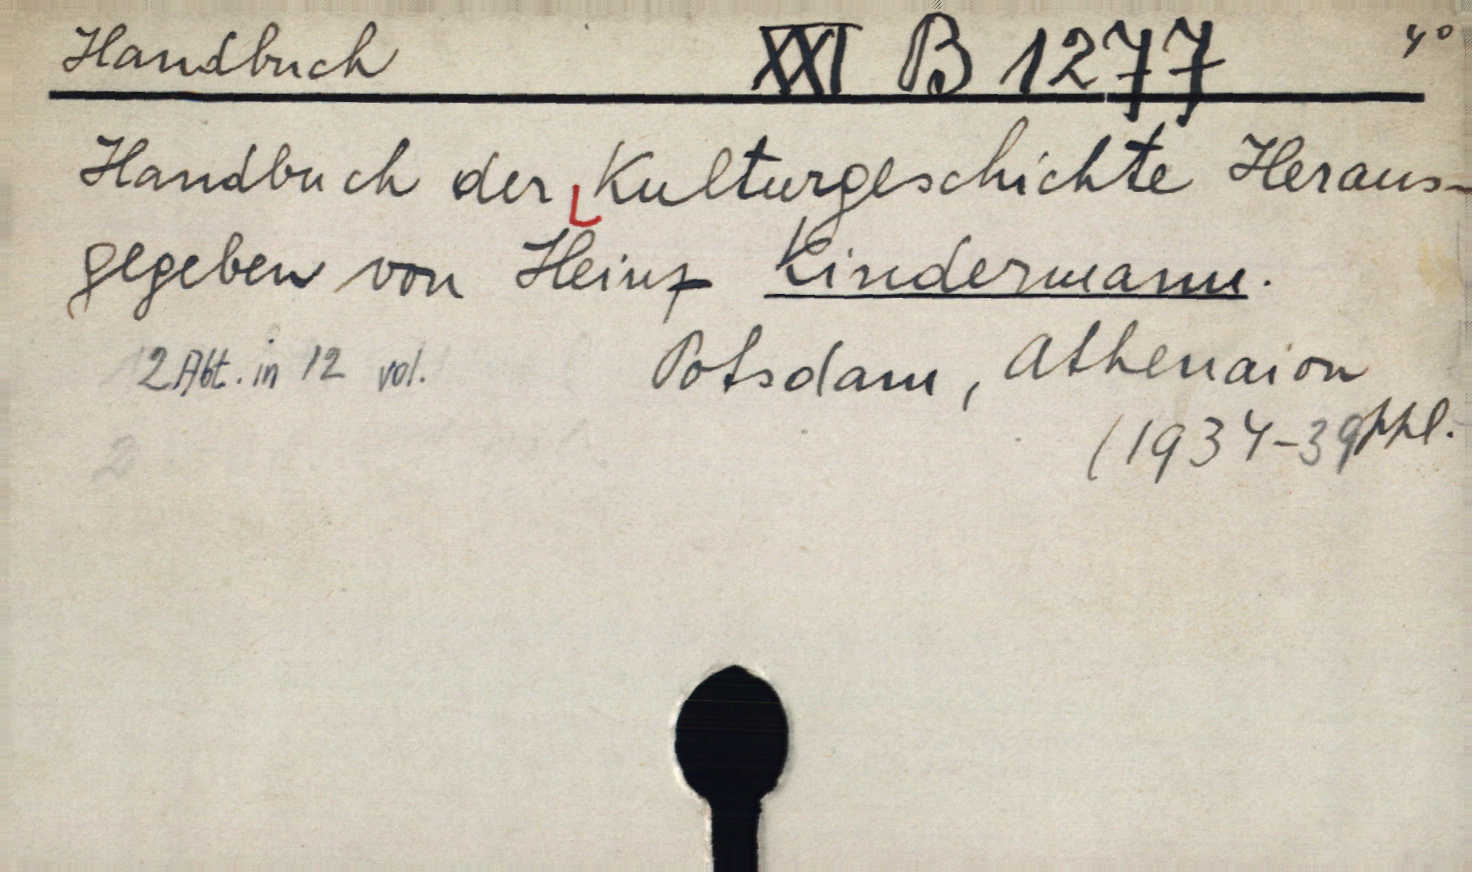 Handbuch XXI B 1277 4°
Handbuch der Kulturgeschichte Heraus-
gegeben von Heinz Kindermann.
2 Abt. in 12 vol. Potsdam, Athenaion
(1934-39)